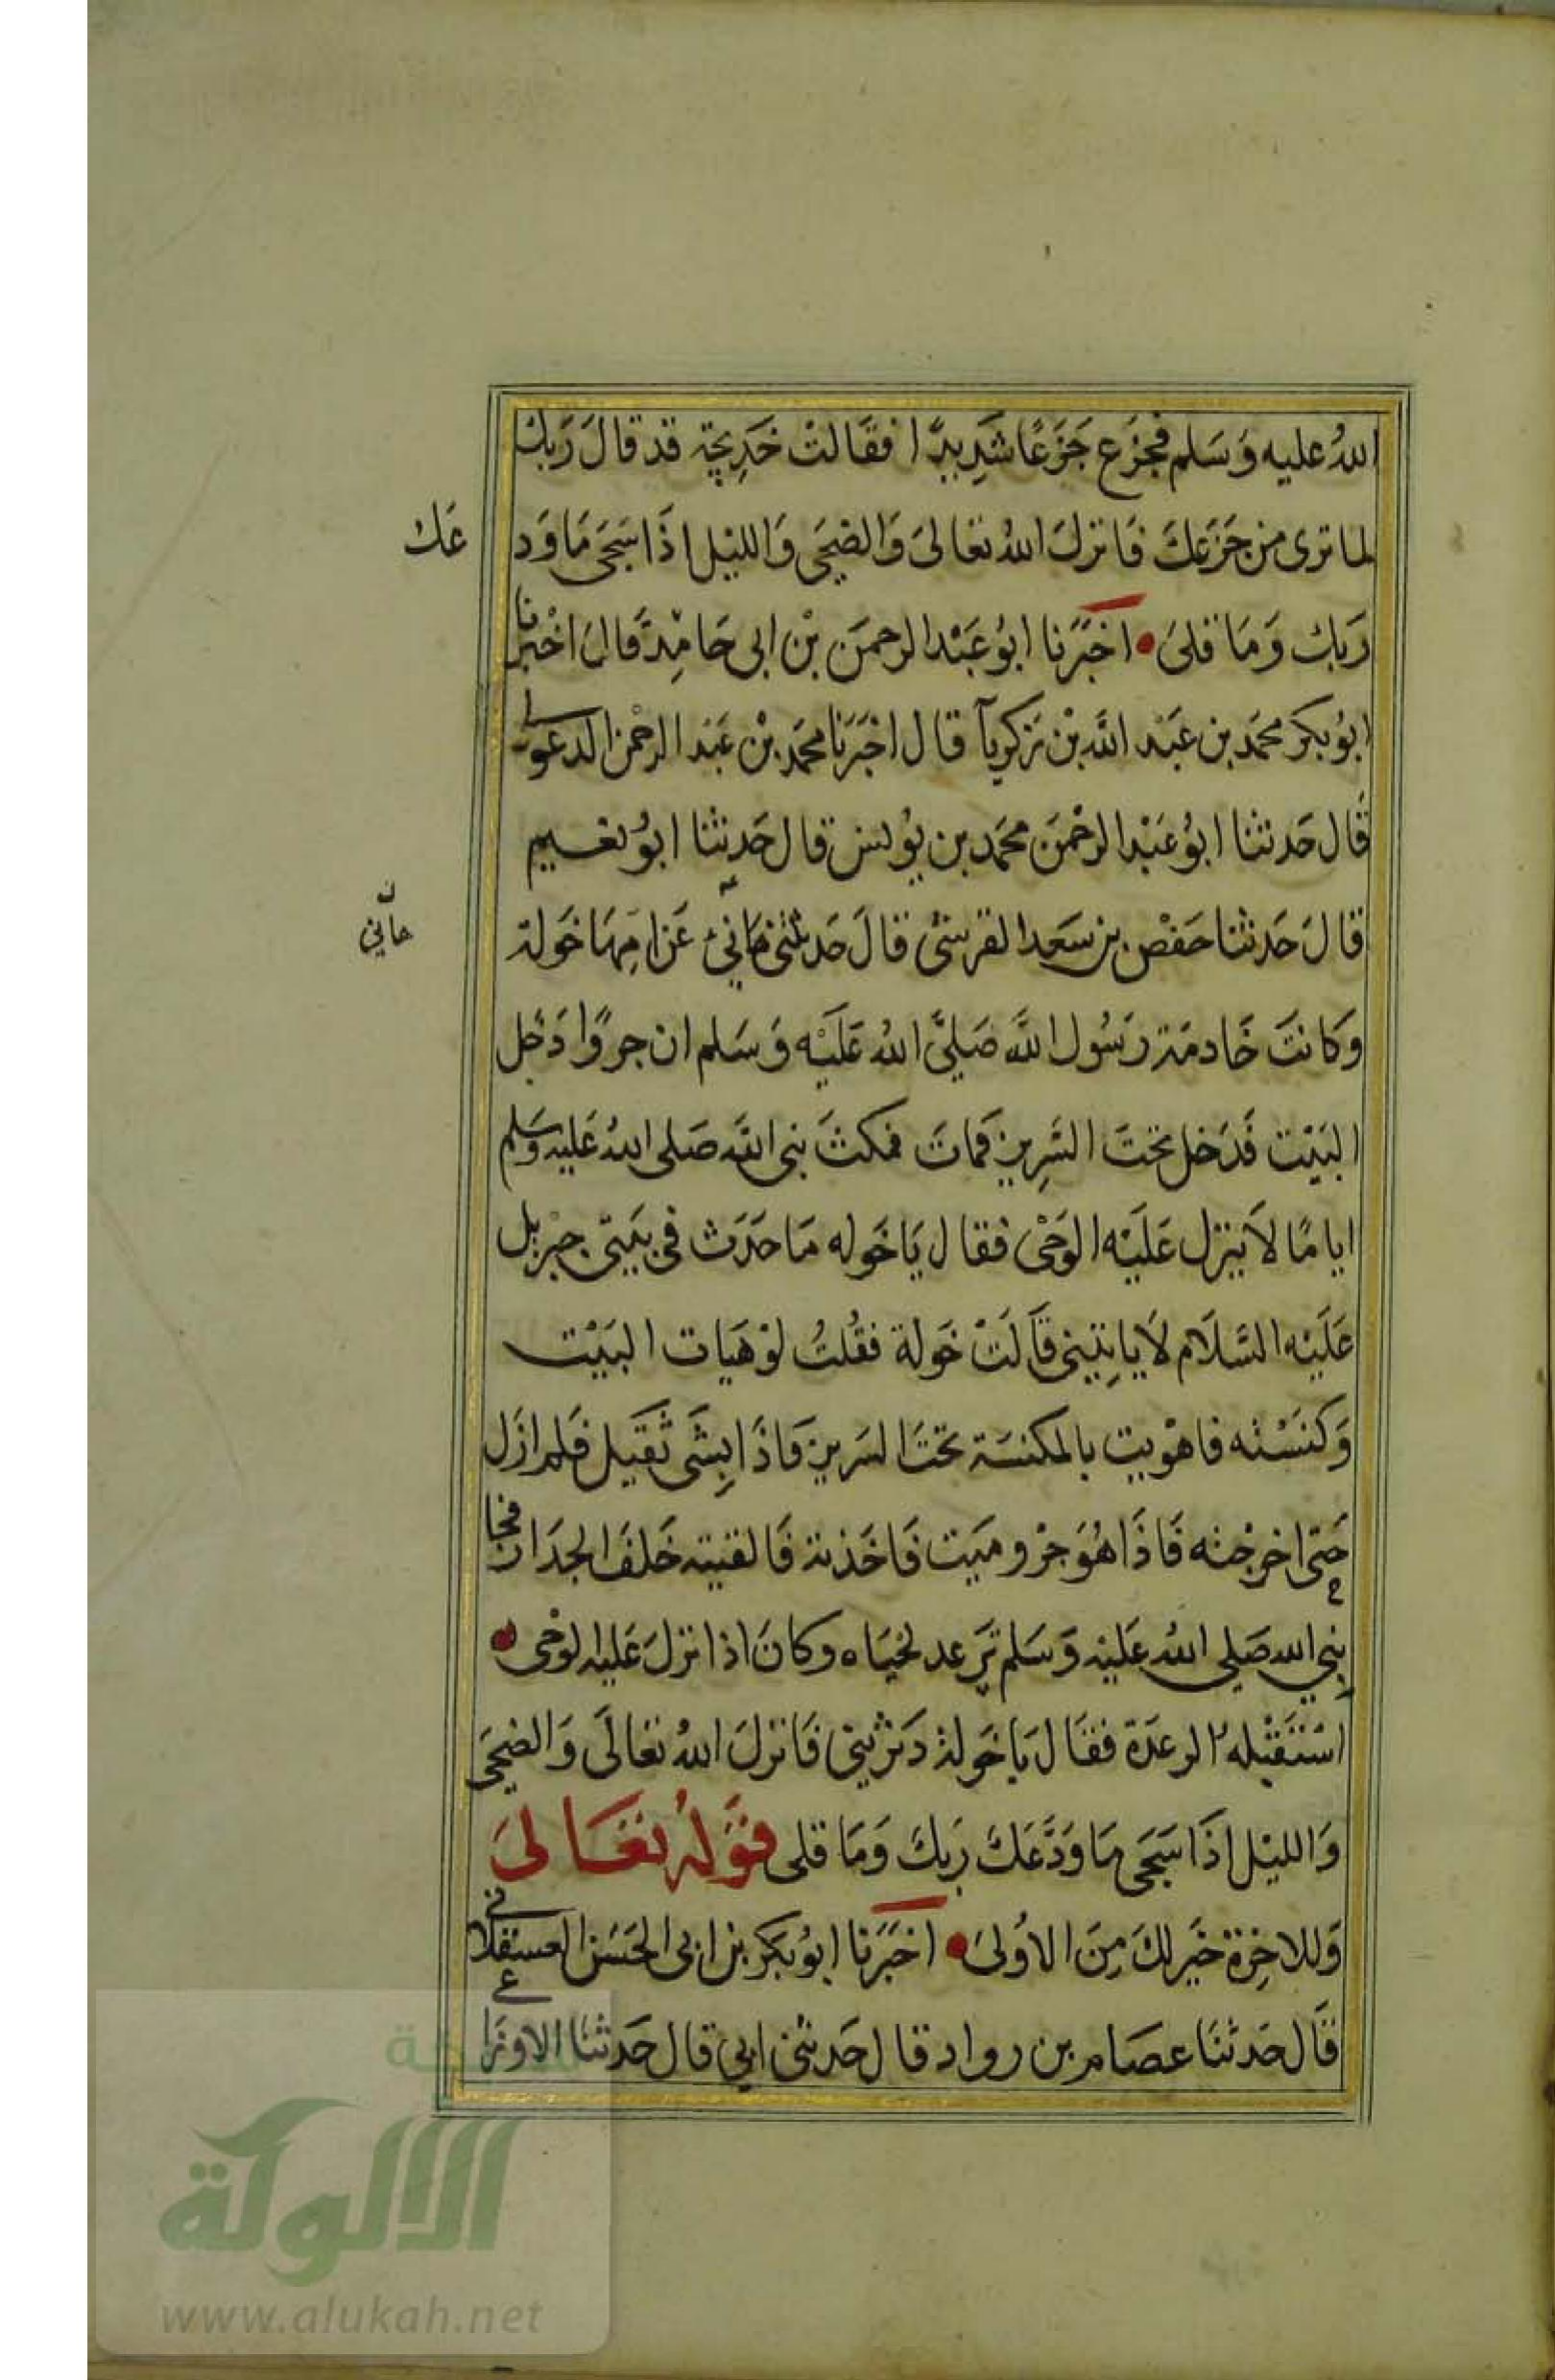 اللهُ عليه وَسَلم فجزع جَزَعًا شَدِيدًا فقَالتْ خَدِيجَة قد قالَ رَبك
لما ترى من جَزَعِكَ فَانزلَ اللهُ تعَالىَ وَالضحَى وَالليْل اذَا سَجَى مَا وَد
عَك
رَبك وَمَا قلىَ • اخبَرَنا ابوُ عَبْد الرحمَن بْن ابى حَامِد قال اخْبرنا
ابوُ بكر محمَد بن عبَد اللَّه بْن زكرياَ قال اخبَرَنا محمَد بْن عَبَد الرحْمن الدغولى
قال حَدثنا ابوُ عَبْد الرحْمنَ محمَد بن يوُنس قال حَدثنا ابوُ نعَيم
قالَ حَدثنا حَفصْ بن سَعَد القرشى قالَ حَدثتنى هَانئ عَن امِهَا خَولة
حانى
وَكانتَ خَادمَة رَسُول اللَّه صَلىَّ اللهُ عَلَيْه وَسَلم ان جروًا دَخل
البَيْت فَدَخل تحَتَ السَّرِير فمَاتَ فمكثَ نبى اللَّه صَلى اللهُ عَليْه وسَلم
اياما لاَ ينزل عَلَيْه الوَحْى فقال يَا خَوله مَا حَدَث فى بَيتى جبْريل
عَلَيْه السَّلَام لاَ يَاتِينى قاَلَتْ خَولة فقُلتُ لوْ هَيات البَيْت
وَكنسْته فاهْويت بالمكنسَة تحَتَ السَرير فاذَا بِشَى ثقَيل فلم ازَل
حَتى اخرجته فَاذَا هُوَ جرْو مَيت فَاخَذته فَالقيته خَلفَ الجدَار فجا
نبِي الله صَلى اللهُ عَليْه وَسَلم ترَعد لحيَاه وكانَ اذا نزلَ عَليه الوَحْى •
اسْتَقْبْله الرعدَة فقَالَ يَا خَولة دَثرْينى فَانزلَ اللهُ تعَالَى وَالضحَى
وَالليْل اذَا سَجَى مَا وَدَّعَكَ رَبكَ وَمَا قلى قوَلهُ تعَالىَ
وَللاخِرَة خَير لكَ مِنَ الاُولىَ • اخبَرَنا ابوُ بَكر بن ابى الحَسَن العسقلانى
قَال حَدثنَا عصَام بن رواد قال حَدثنى ابى قال حَدثنا الاوزَاعى
شبكة
الألوكة
www.alukah.net